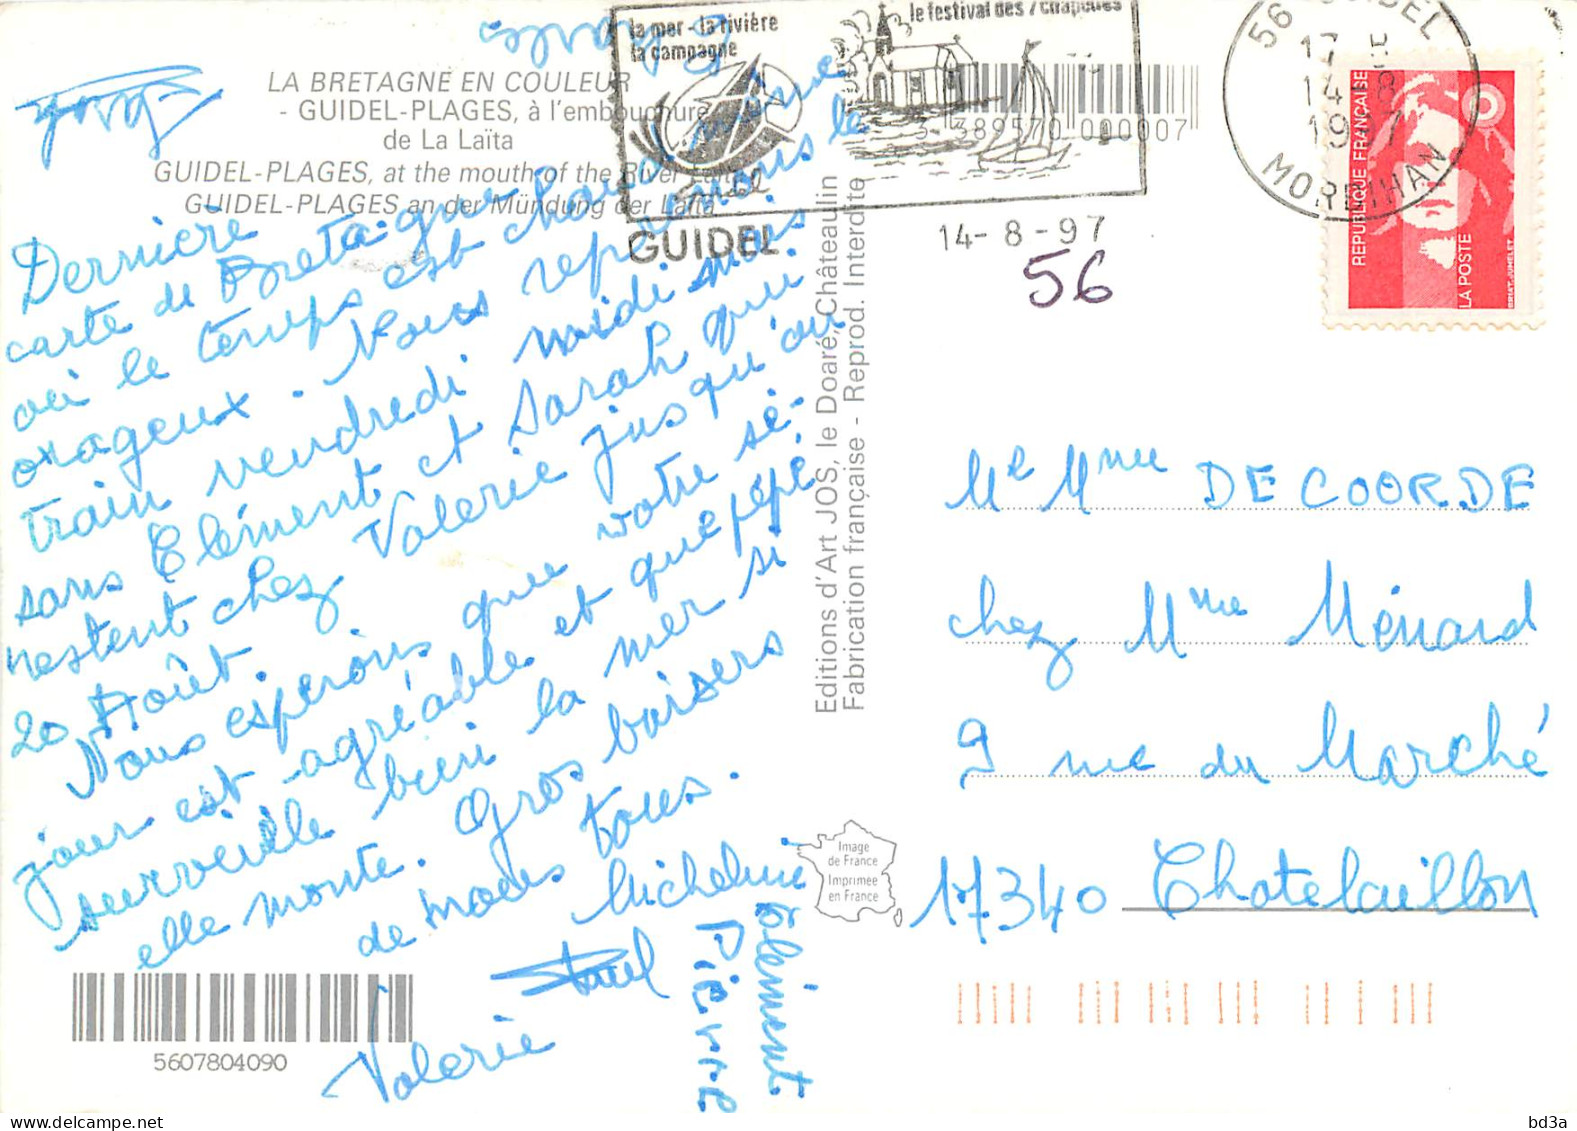 LA BRETAGNE EN COULEUR
- GUIDEL-PLAGES, à l'embouchure
de La Laïta
GUIDEL-PLAGES, at the mouth of the River Laïta
GUIDEL-PLAGES an der Mündung der Laïta
Dernière
carte de Bretagne
où le temps est chaud même
orageux. Nous reprenons le
train vendredi midi mais
sans Clément et Sarah qui
restent chez Valerie jusqu'au
20 Août.
Nous esperons que votre sé-
jour est agréable et que pépé
surveille bien la mer si
elle monte. Gros baisers
de nous tous.
Micheline
Paul
Valerie
Pierre
Clément.
la mer - la rivière
la campagne
le festival des 7 chapelles
GUIDEL
3 389570 000007
14-8-97
56
56 GUIDEL
17 H
14-8
1997
MORBIHAN
REPUBLIQUE FRANÇAISE
LA POSTE
BRIAT-JUMELET
Editions d'Art JOS, le Doaré, Châteaulin
Fabrication française - Reprod. Interdite
Image
de France
Imprimée
en France
Mr Mme DECOORDE
chez Mme Ménard
9 rue du Marché
17340 Chatelaillon
5607804090